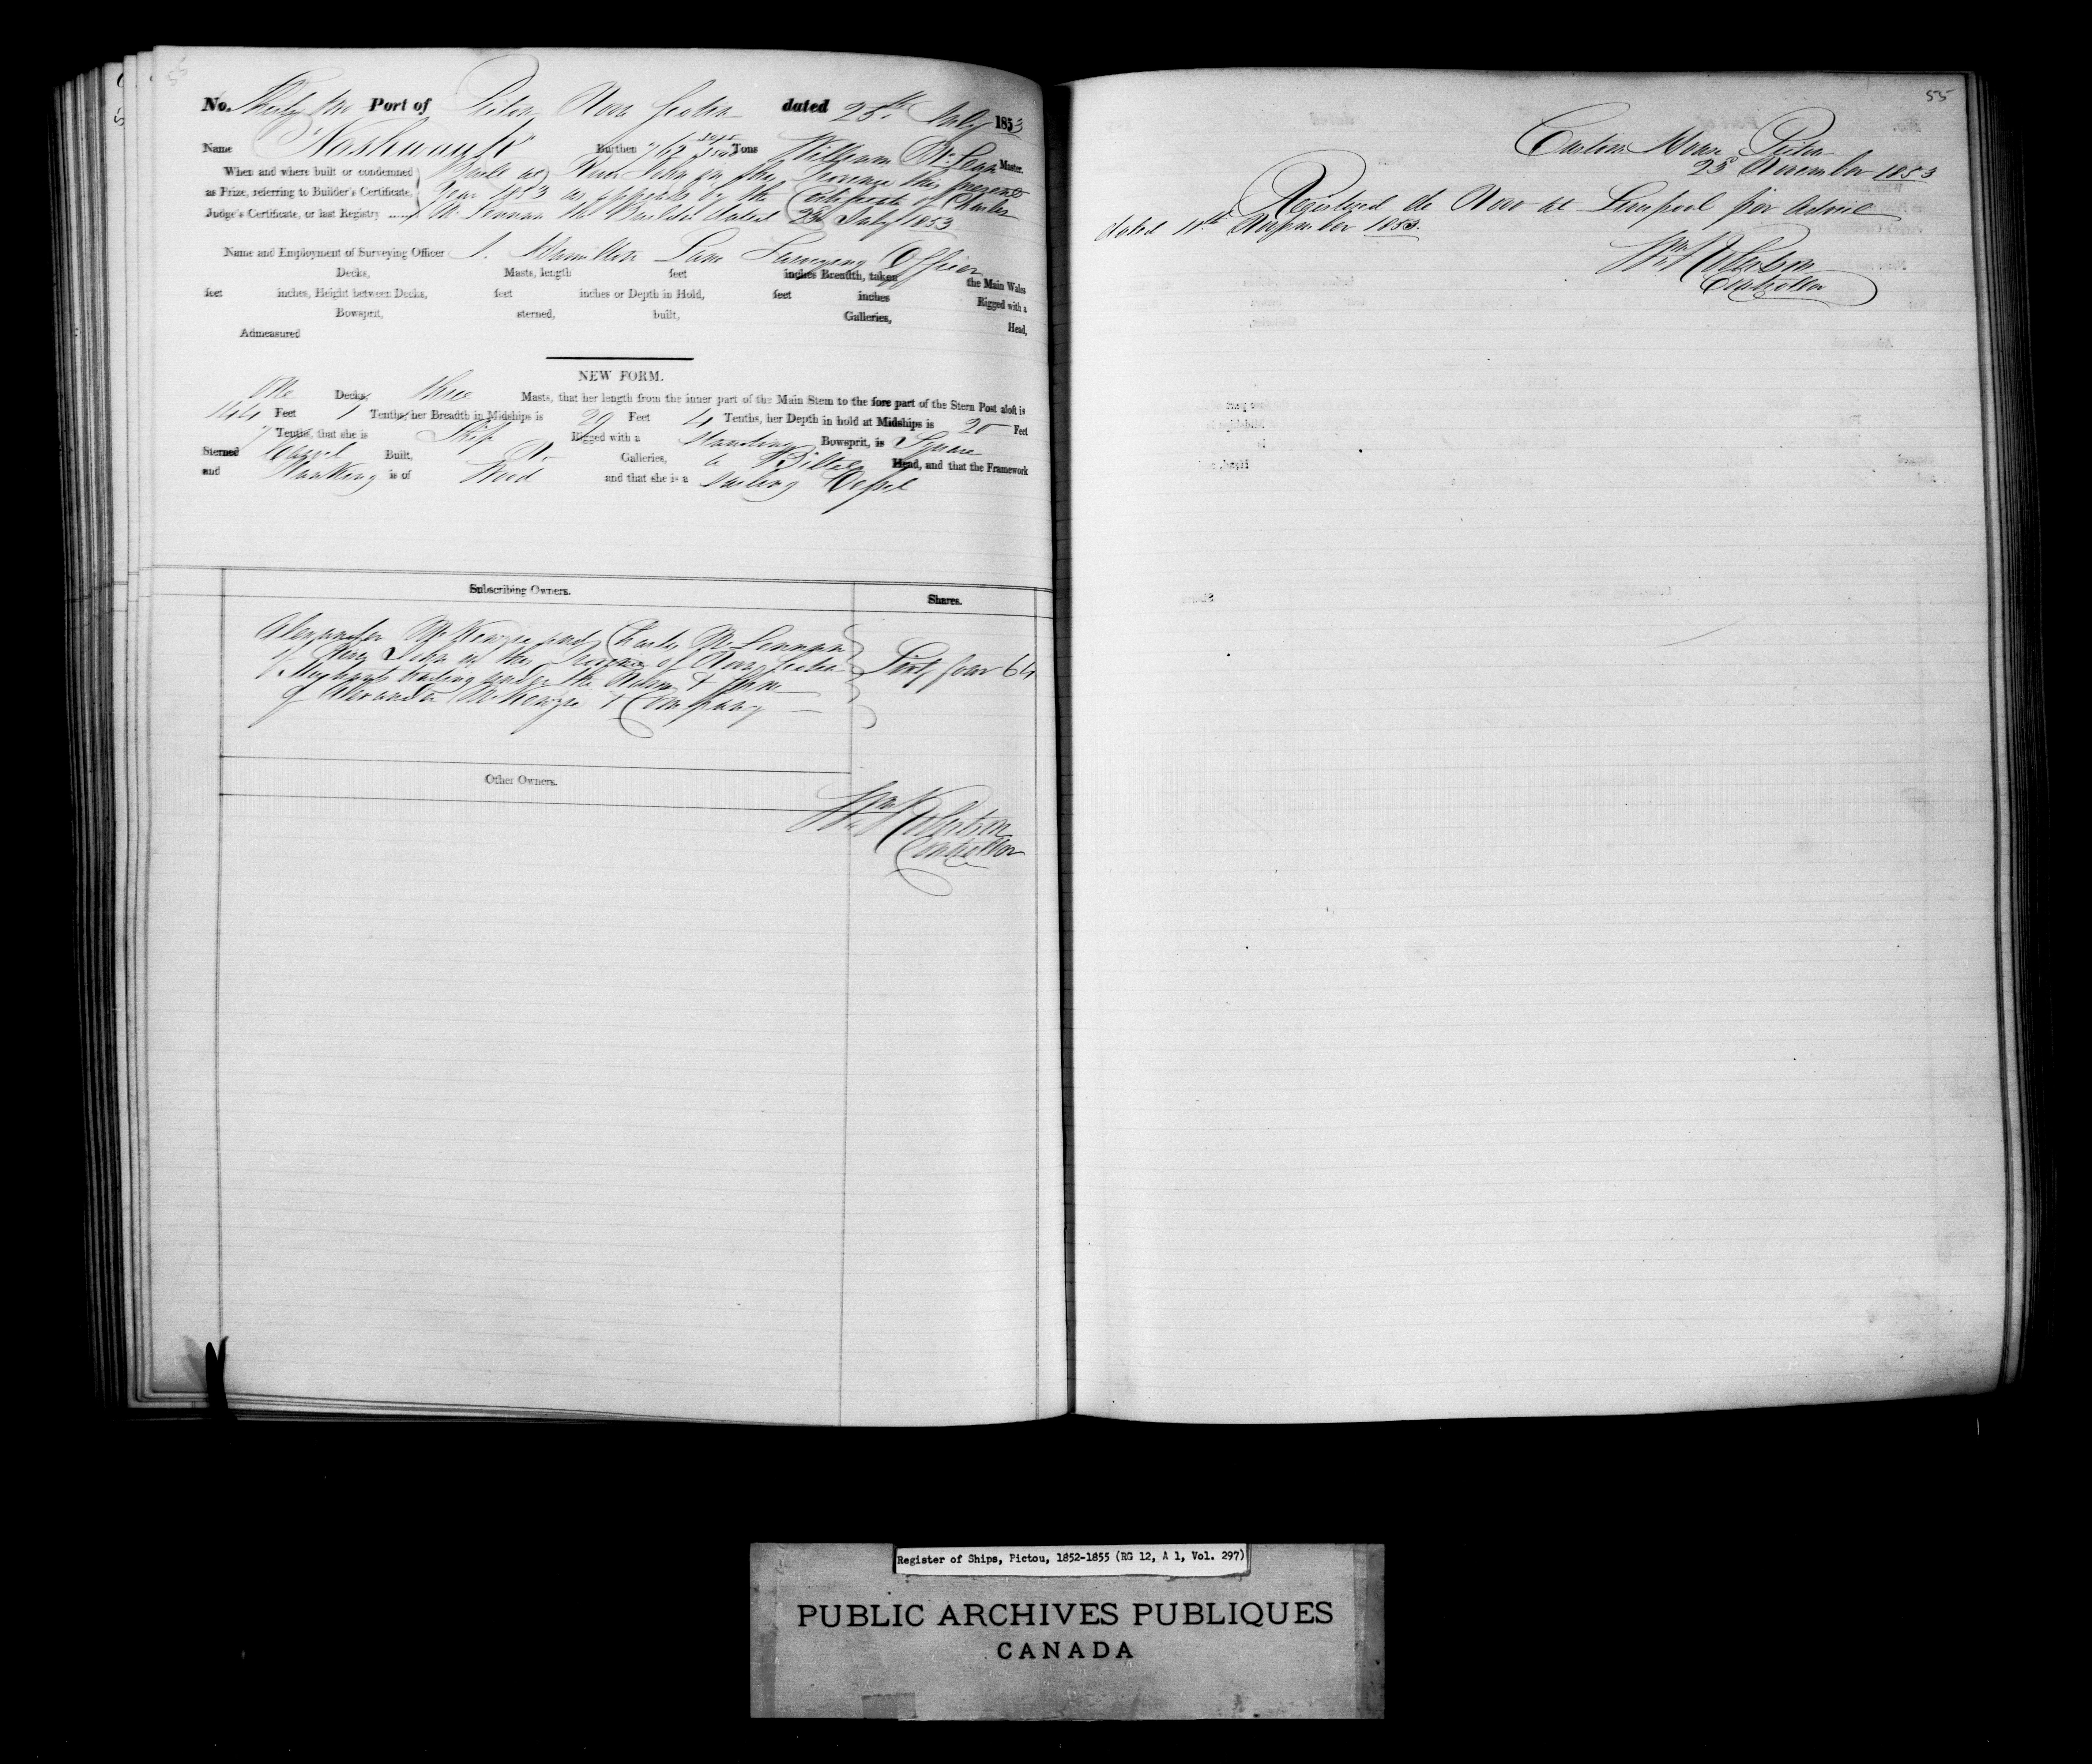 55
No. Thirty two Port of Pictou Nova Scotia dated 25th July 1853
Name "Nashwauk" Burthen 762 Tons William McLean Master.
When and where built or condemned as Prize, referring to Builder's Certificate, Judge's Certificate, or last Registry
Built at River John in the Province this present
Year 1853 as appears by the Certificate of Charles
McLennan the Builder dated 23d July 1853
Name and Employment of Surveying Officer J. Hamilton Lane Surveying Officer
Decks, Masts, length feet inches Breadth, taken the Main Wales
feet inches, Height between Decks, feet inches or Depth in Hold, feet inches Rigged with a
Bowsprit, sterned, built, Galleries, Head,
Admeasured
NEW FORM.
One Decks, three Masts, that her length from the inner part of the Main Stem to the fore part of the Stern Post aloft is
144 Feet 1 Tenths, her Breadth in Midships is 29 Feet 4 Tenths, her Depth in hold at Midships is 20 Feet
7 Tenths, that she is Ship Rigged with a standing Bowsprit, is Square
Sterned Carvel Built, No Galleries, a Billet Head, and that the Framework
and Planking is of Wood and that she is a Sailing Vessel
Subscribing Owners. Shares.
Alexander McKenzie and Charles McLennan
of River John in the Province of Nova Scotia
Merchants trading under the Name & Firm
of Alexander McKenzie & Company
Sixty four 64
Other Owners.
Wm Robertson
Controller
55
Custom House Pictou
25 November 1853
Registered de Novo at Liverpool per advice
dated 11th November 1853.
Wm Robertson
Controller
Register of Ships, Pictou, 1852-1855 (RG 12, A 1, Vol. 297)
PUBLIC ARCHIVES PUBLIQUES
CANADA